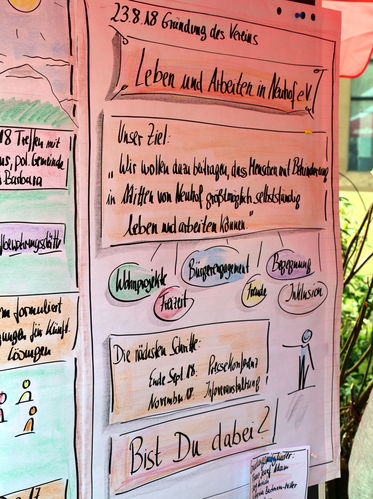 18 Treffen mit
pol. Gemeinde
Barbara
formuliert
Lösungen
23.8.18 Gründung des Vereins
Leben und Arbeiten in Neuhof e.V.
Unser Ziel:
„Wir wollen dazu beitragen, dass Menschen mit Behinderung
in Mitten von Neuhof größtmöglich selbstständig
leben und arbeiten können."
Wohnprojekte
Bürgerengagement
Begegnung
Freizeit
Freunde
Inklusion
Die nächsten Schritte:
Ende Sept 18: Pressekonferenz
November 18: Infoveranstaltung!
Bist Du dabei?